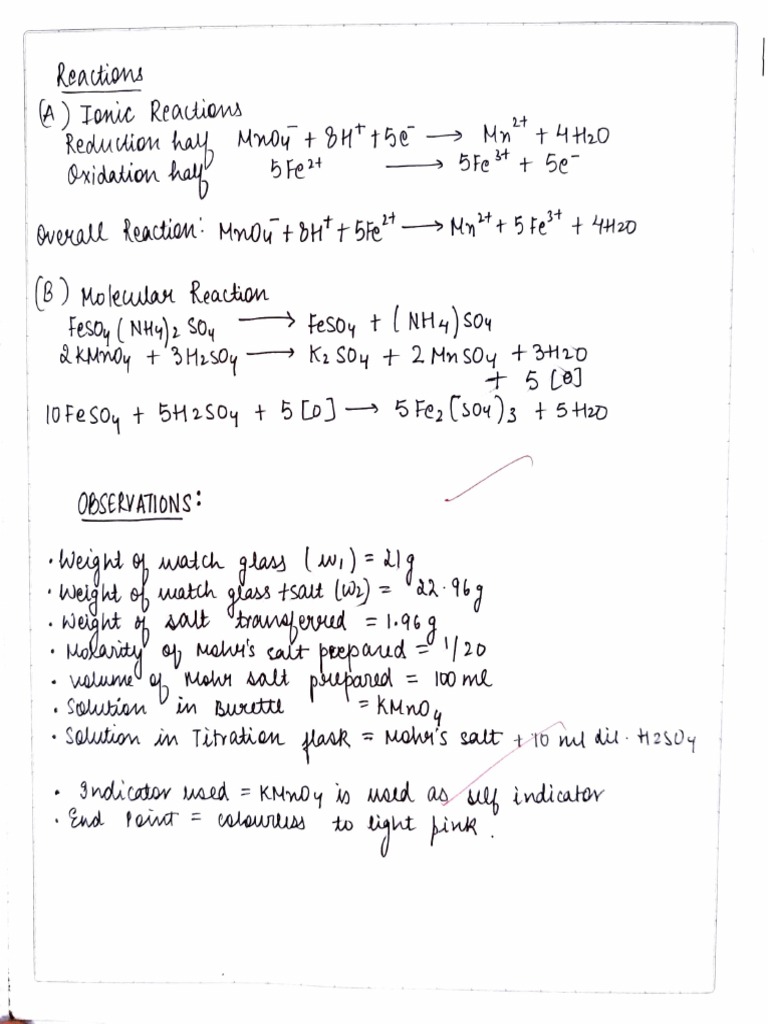 Reactions
(A) Ionic Reactions
Reduction half MnO4⁻ + 8H⁺ + 5e⁻ ⟶ Mn²⁺ + 4H2O
Oxidation half 5Fe²⁺ ⟶ 5Fe³⁺ + 5e⁻
Overall Reaction: MnO4⁻ + 8H⁺ + 5Fe²⁺ ⟶ Mn²⁺ + 5Fe³⁺ + 4H2O
(B) Molecular Reaction
FeSO4(NH4)2 SO4 ⟶ FeSO4 + (NH4)SO4
2KMnO4 + 3H2SO4 ⟶ K2SO4 + 2MnSO4 + 3H2O
+ 5[O]
10FeSO4 + 5H2SO4 + 5[O] ⟶ 5Fe2(SO4)3 + 5H2O
OBSERVATIONS:
• Weight of watch glass (w1) = 21g
• Weight of watch glass + salt (w2) = 22.96g
• Weight of salt transferred = 1.96g
• Molarity of Mohr's salt prepared = 1/20
• Volume of Mohr salt prepared = 100 ml
• Solution in Burette = KMnO4
• Solution in Titration flask = Mohr's salt + 10 ml dil. H2SO4
• Indicator used = KMnO4 is used as self indicator
• End Point = colourless to light pink.